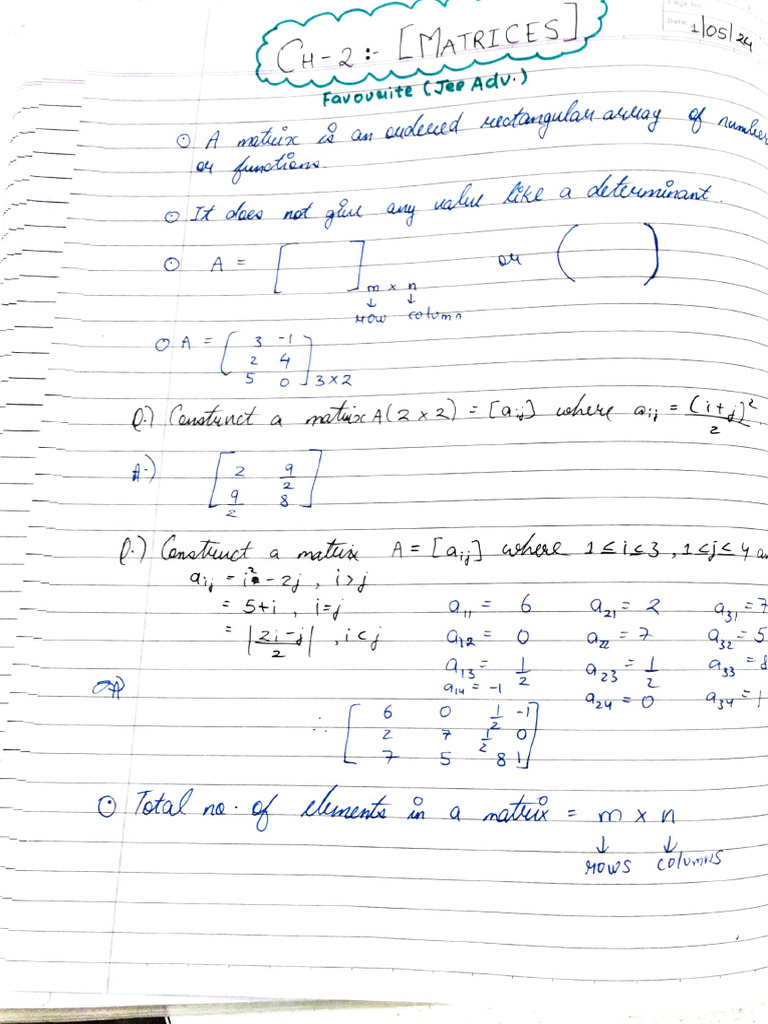 Page No.
Date 1/05/24
CH-2 :- [MATRICES]
Favourite (Jee Adv.)
⊙ A matrix is an ordered rectangular array of number
or functions.
⊙ It does not give any value like a determinant.
⊙ A = [ ] m × n or ( )
↓ ↓
row column
⊙ A = [ 3 -1
2 4
5 0 ] 3×2
Q.) Construct a matrix A(2×2) = [aij] where aij = (i+j)²/2
A.) [ 2 9/2
9/2 8 ]
Q.) Construct a matrix A = [aij] where 1≤i≤3, 1≤j≤4 an
aij = i² - 2j, i>j
= 5+i, i=j
= |2i-j|/2, i<j
a11 = 6 a21 = 2 a31 = 7
a12 = 0 a22 = 7 a32 = 5
a13 = 1/2 a23 = 1/2 a33 = 8
a14 = -1 a24 = 0 a34 = 1
A)
∴ [ 6 0 1/2 -1
2 7 1/2 0
7 5 8 1 ]
⊙ Total no. of elements in a matrix = m × n
↓ ↓
rows columns